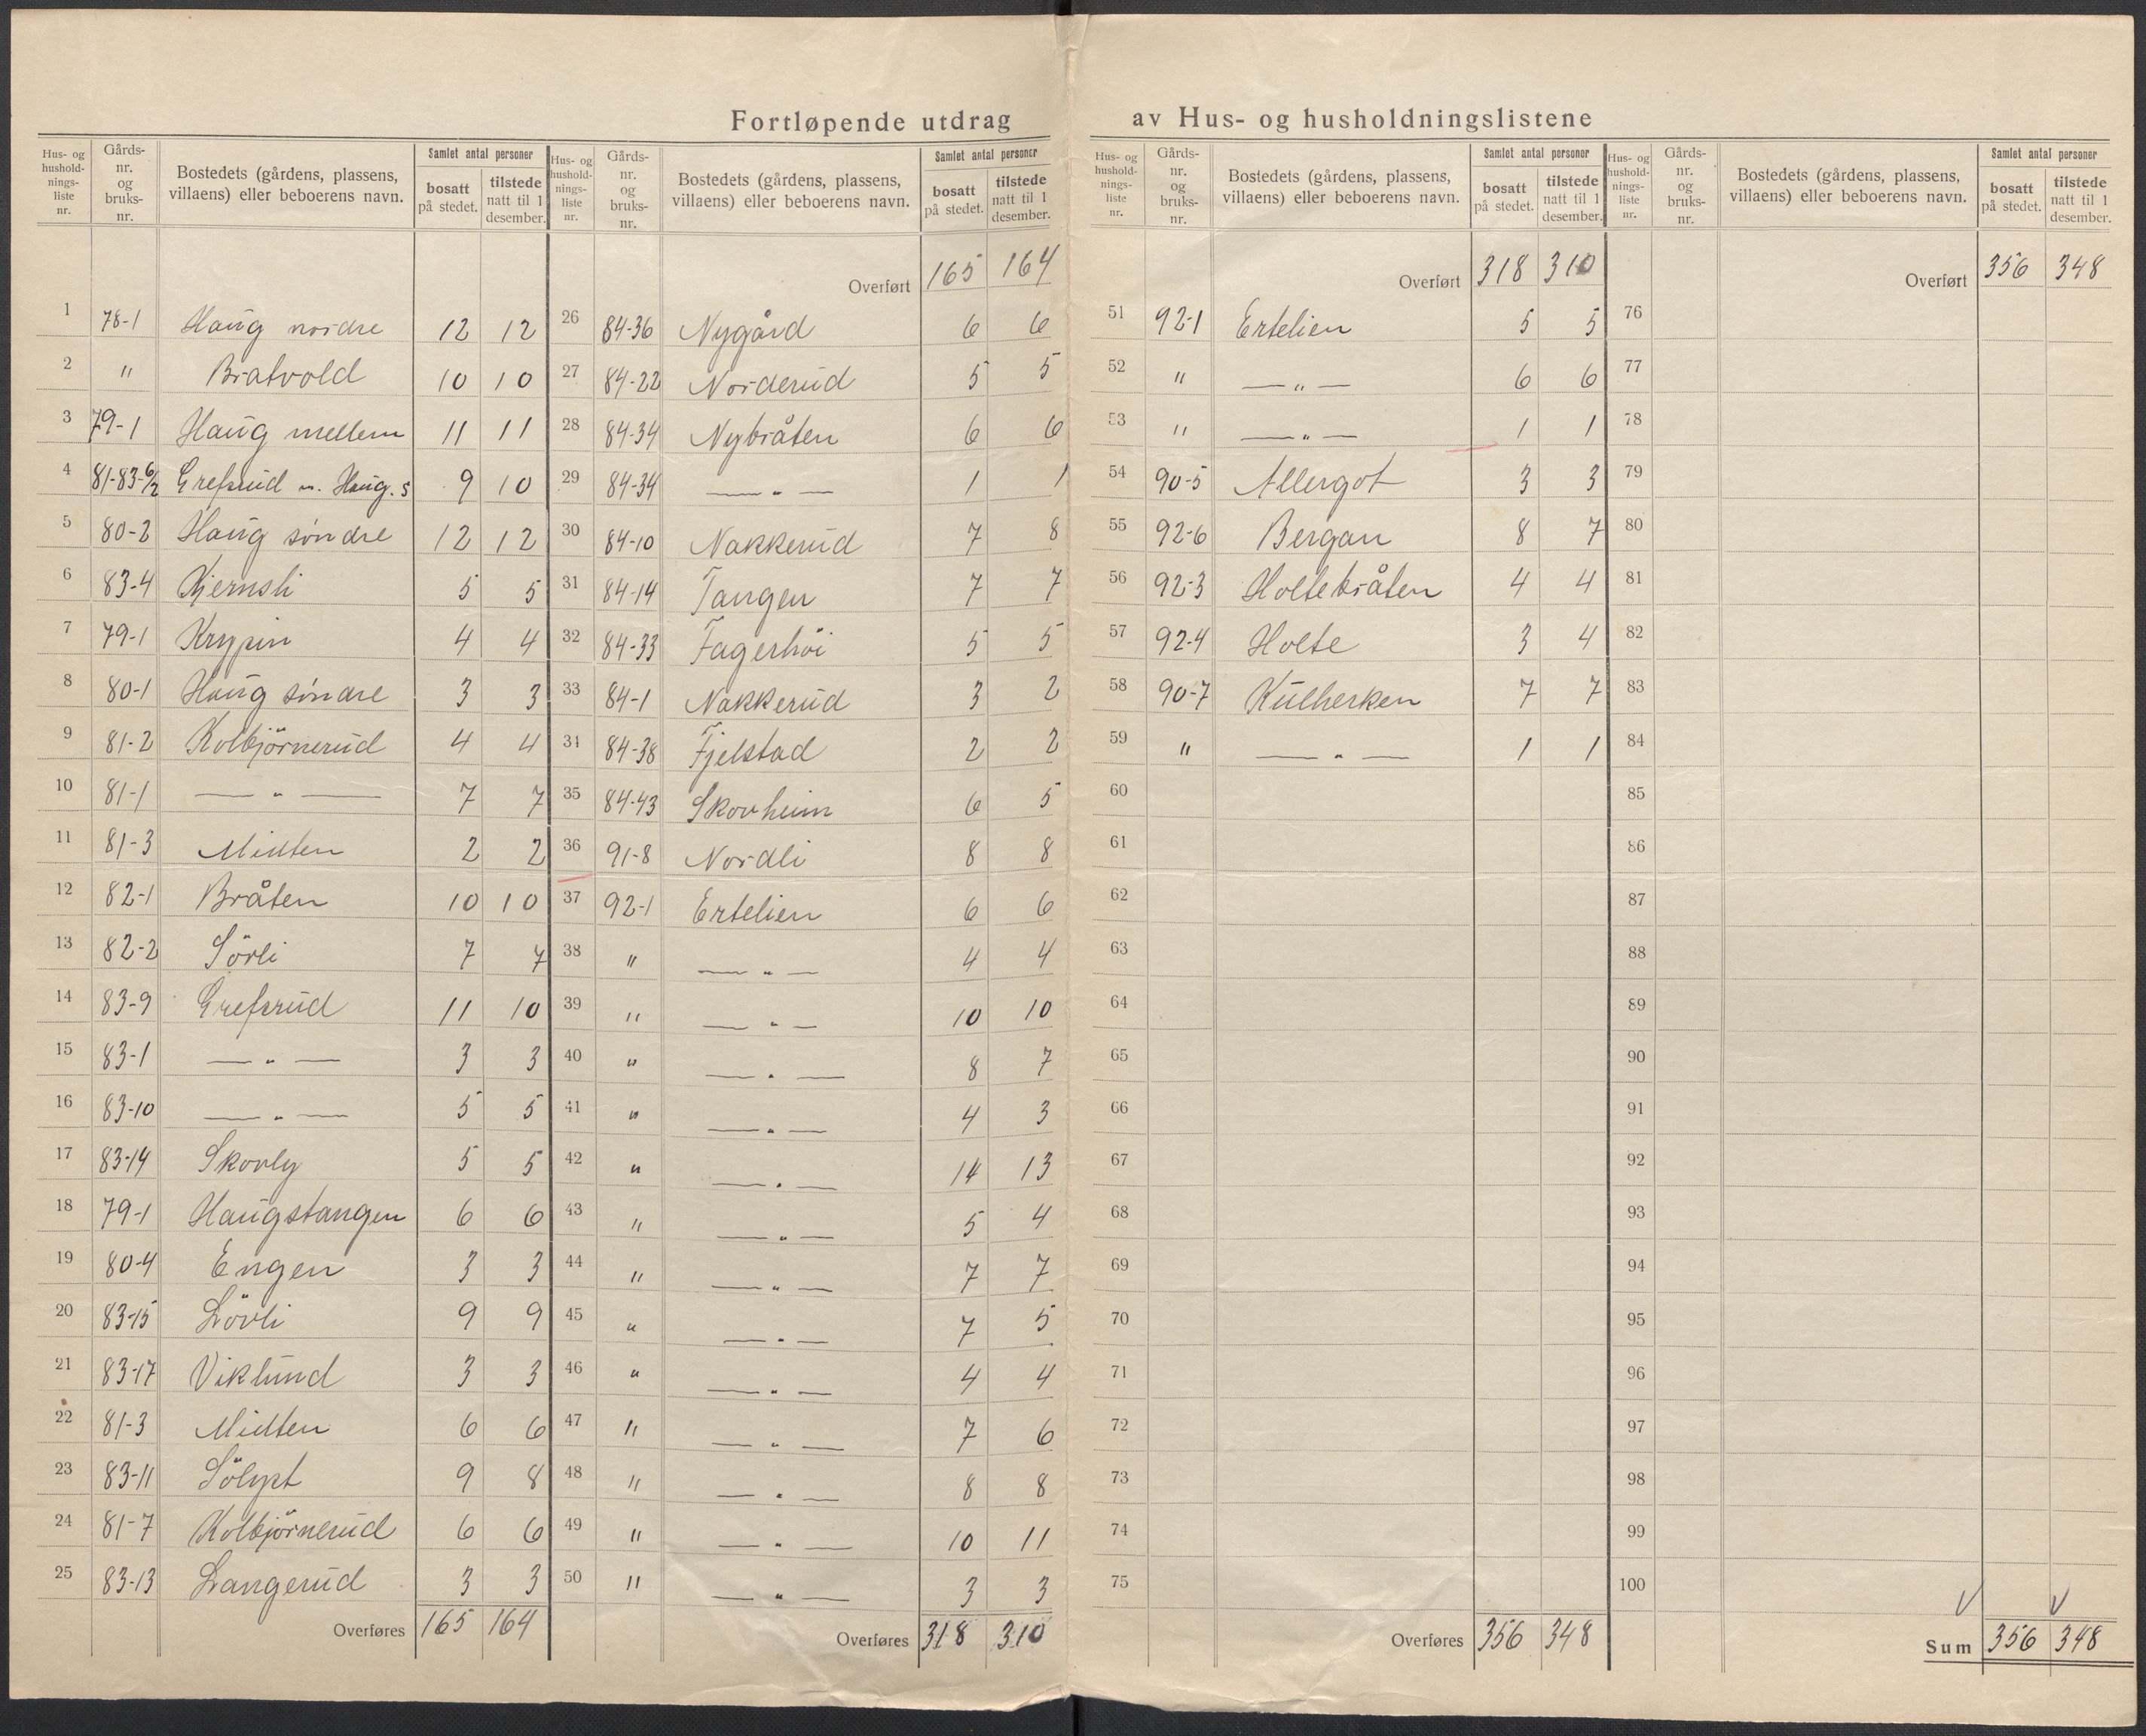 Fortløpende utdrag av Hus- og husholdningslistene
Hus- og husholdnings-liste nr. Gårds-nr. og bruks-nr. Bostedets (gårdens, plassens, villaens) eller beboerens navn. Samlet antal personer bosatt på stedet. tilstede natt til 1 desember.
1 78-1 Haug nordre 12 12
2 " Bratvold 10 10
3 79-1 Haug mellem 11 11
4 81-83-6/2 Grefsrud n. Haug. s 9 10
5 80-2 Haug søndre 12 12
6 83-4 Kjernsli 5 5
7 79-1 Krypin 4 4
8 80-1 Haug søndre 3 3
9 81-2 Kolbjörnerud 4 4
10 81-1 — " — 7 7
11 81-3 Midten 2 2
12 82-1 Bråten 10 10
13 82-2 Sörli 7 7
14 83-9 Grefsrud 11 10
15 83-1 — " — 3 3
16 83-10 — " — 5 5
17 83-14 Skovly 5 5
18 79-1 Haugstangen 6 6
19 80-4 Engen 3 3
20 83-15 Lövli 9 9
21 83-17 Viklund 3 3
22 81-3 Midten 6 6
23 83-11 Sölyst 9 8
24 81-7 Kolbjörnerud 6 6
25 83-13 Langerud 3 3
Overføres 165 164
Hus- og husholdnings-liste nr. Gårds-nr. og bruks-nr. Bostedets (gårdens, plassens, villaens) eller beboerens navn. Samlet antal personer bosatt på stedet. tilstede natt til 1 desember.
Overført 165 164
26 84-36 Nygård 6 6
27 84-22 Norderud 5 5
28 84-34 Nybråten 6 6
29 84-34 — " — 1 1
30 84-10 Nakkerud 7 8
31 84-14 Tangen 7 7
32 84-33 Fagerhöi 5 5
33 84-1 Nakkerud 3 2
34 84-38 Fjelstad 2 2
35 84-43 Skovheim 6 5
36 91-8 Nordli 8 8
37 92-1 Ertelien 6 6
38 " — " — 4 4
39 " — " — 10 10
40 " — " — 8 7
41 " — " — 4 3
42 " — " — 14 13
43 " — " — 5 4
44 " — " — 7 7
45 " — " — 7 5
46 " — " — 4 4
47 " — " — 7 6
48 " — " — 8 8
49 " — " — 10 11
50 " — " — 3 3
Overføres 318 310
Hus- og husholdnings-liste nr. Gårds-nr. og bruks-nr. Bostedets (gårdens, plassens, villaens) eller beboerens navn. Samlet antal personer bosatt på stedet. tilstede natt til 1 desember.
Overført 318 310
51 92-1 Ertelien 5 5
52 " — " — 6 6
53 " — " — 1 1
54 90-5 Allergot 3 3
55 92-6 Bergan 8 7
56 92-3 Holtebråten 4 4
57 92-4 Holte 3 4
58 90-7 Kulherken 7 7
59 " — " — 1 1
60
61
62
63
64
65
66
67
68
69
70
71
72
73
74
75
Overføres 356 348
Hus- og husholdnings-liste nr. Gårds-nr. og bruks-nr. Bostedets (gårdens, plassens, villaens) eller beboerens navn. Samlet antal personer bosatt på stedet. tilstede natt til 1 desember.
Overført 356 348
76
77
78
79
80
81
82
83
84
85
86
87
88
89
90
91
92
93
94
95
96
97
98
99
100
Sum 356 348